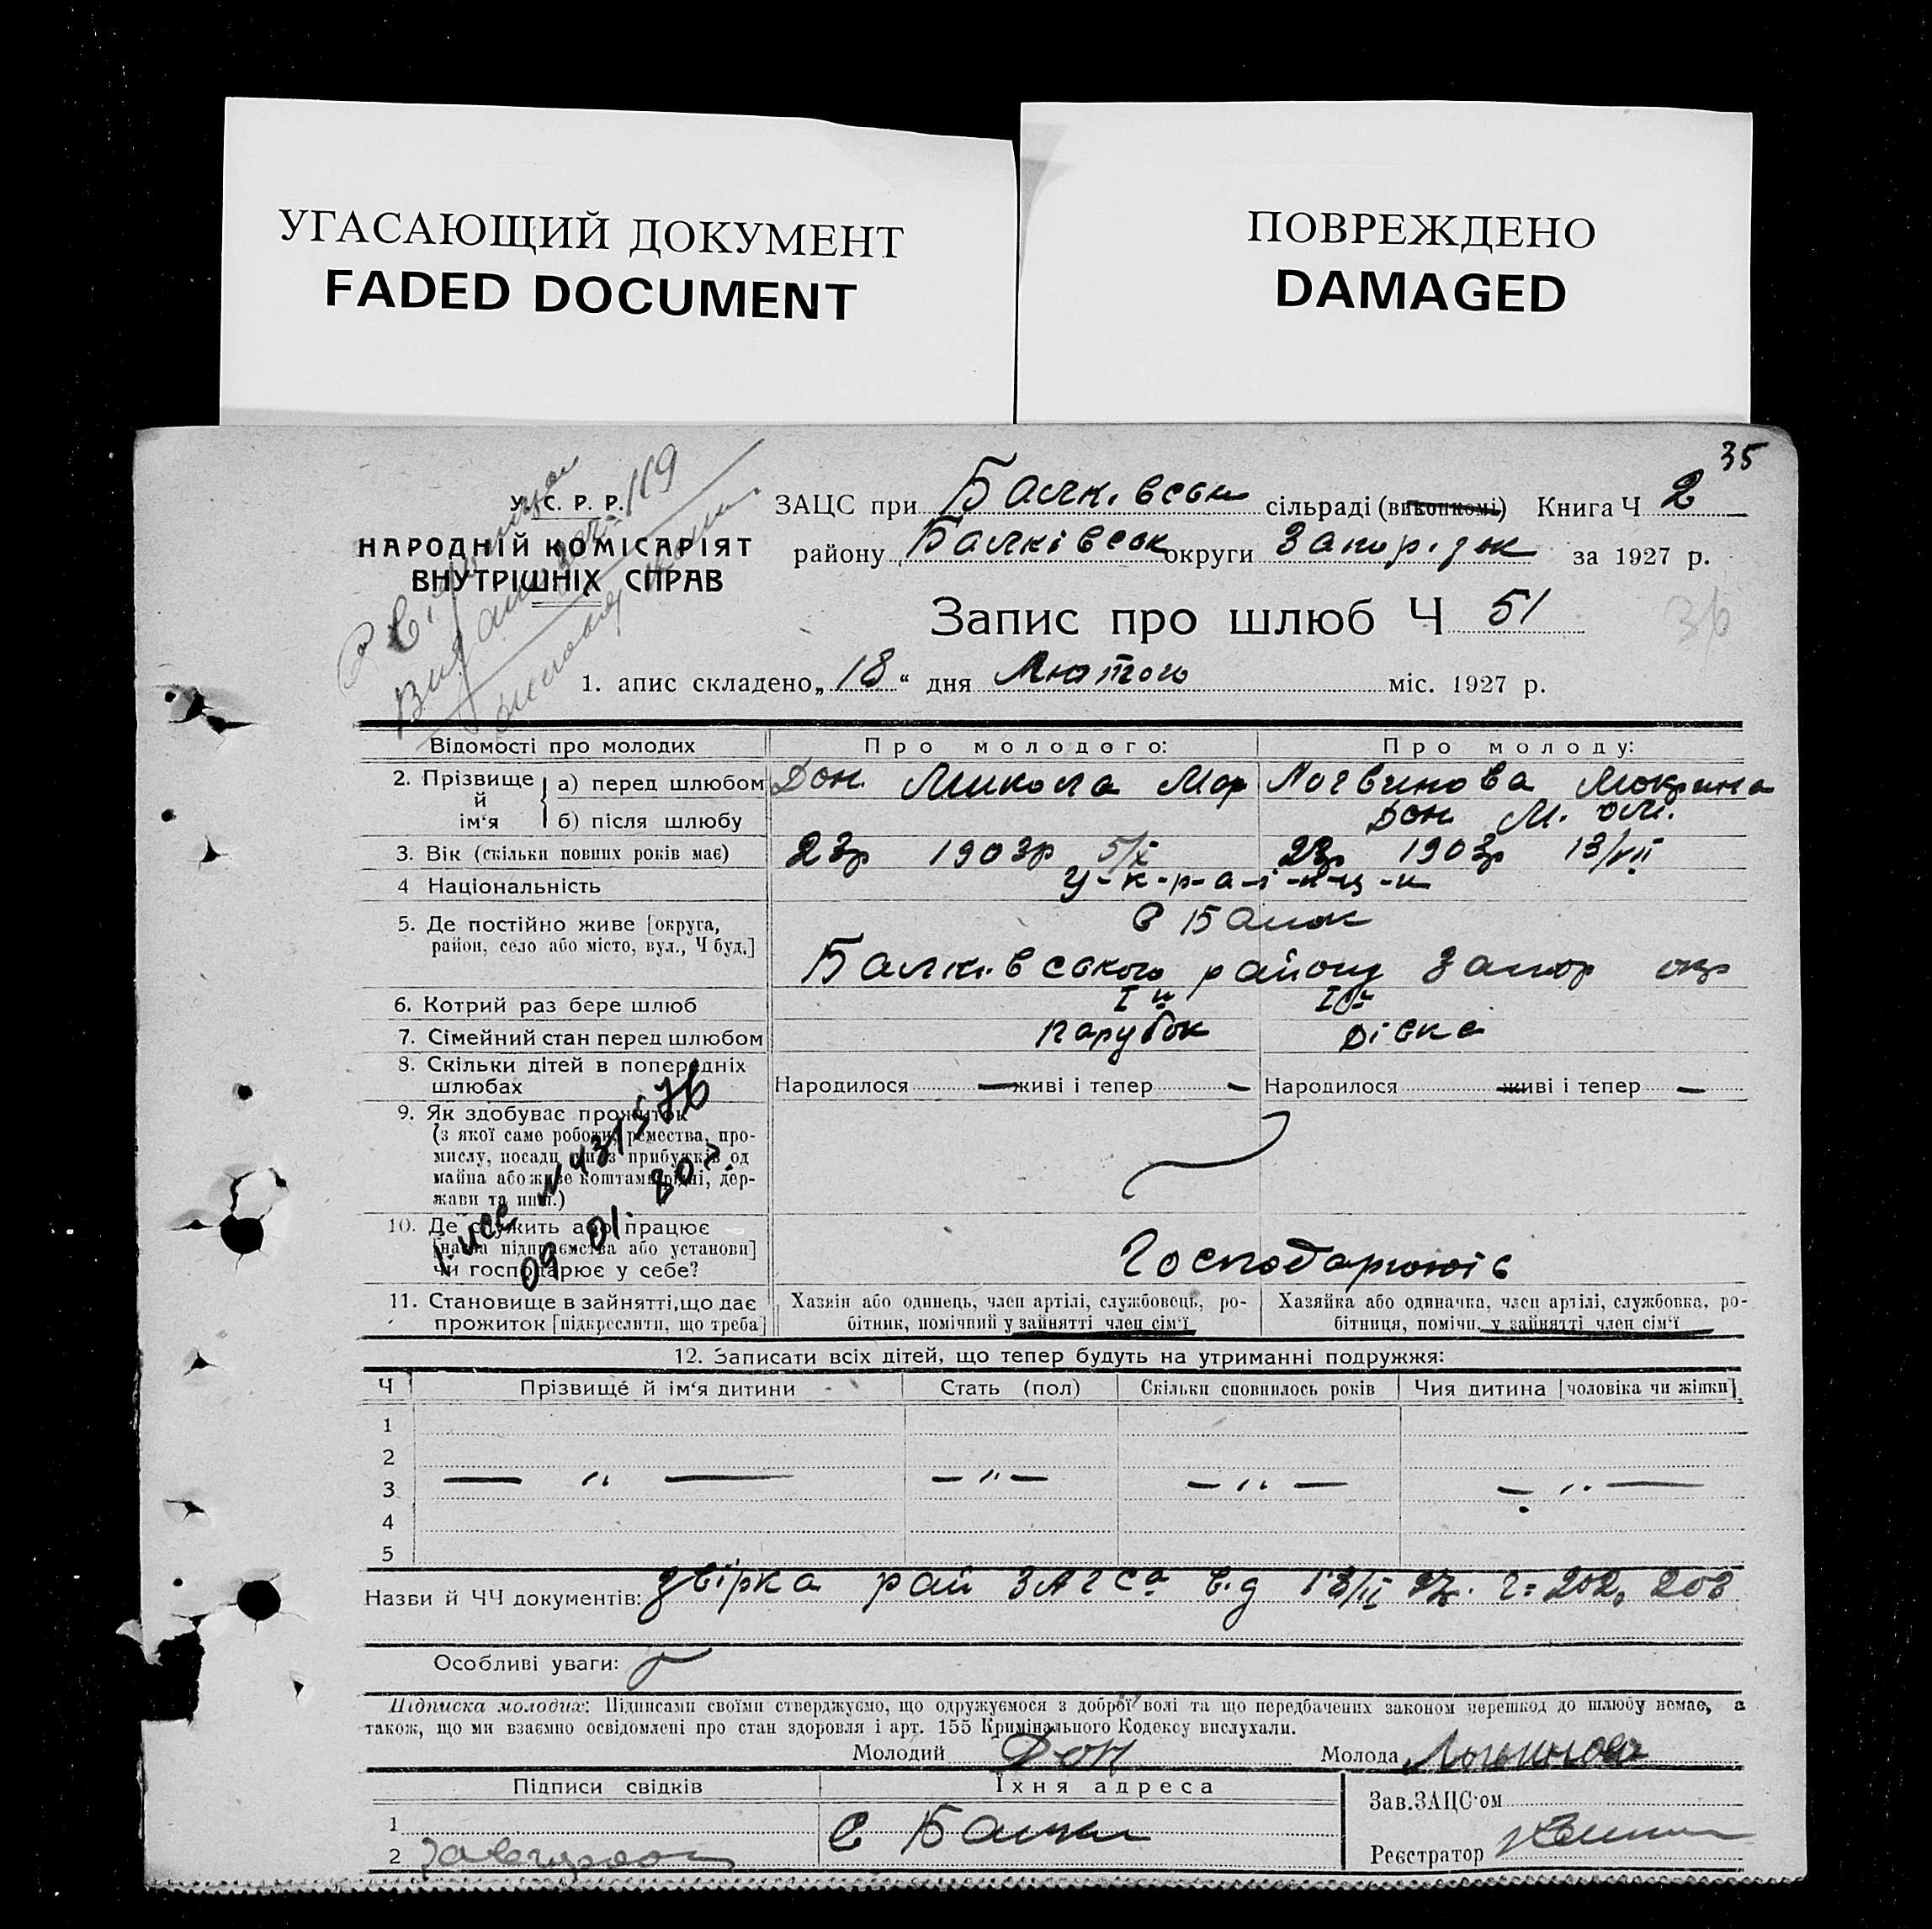 УГАСАЮЩИЙ ДОКУМЕНТ
FADED DOCUMENT
ПОВРЕЖДЕНО
DAMAGED
35
У. С. Р. Р.
119
НАРОДНІЙ КОМІСАРІЯТ
ВНУТРІШНІХ СПРАВ
ЗАЦС при Балківськ сільраді (виконкомі) Книга Ч 2
району Балківськ округи Запоріզьк за 1927 р.
Запис про шлюб Ч 51
36
1. апис складено „18“ дня Лютого міс. 1927 р.
Відомості про молодих
Про молодого:
Про молоду:
2. Прізвище й ім‘я
а) перед шлюбом
Дон Микола Мар
Логвинова Мокрина
б) після шлюбу
Дон М. ОМ.
3. Вік (скільки повних років має)
23р 1903р 5/X
23р 1903р 13/VII
4 Національність
У-к-р-а-ї-н-ц-и
5. Де постійно живе [округа,
район, село або місто, вул., Ч буд.]
с Балок
Балківського району Запор окр
6. Котрий раз бере шлюб
І й
І а
7. Сімейний стан перед шлюбом
парубок
дівка
8. Скільки дітей в попередніх
шлюбах
Народилося — живі і тепер —
Народилося — живі і тепер —
9. Як здобуває прожиток
(з якої саме роботи, ремества, про-
мислу, посади чи з прибутків од
майна або живе коштами рідні, дер-
жави та инш.)
10. Де служить або працює
[назва підприємства або установи]
чи господарює у себе?
Господарюють
09 01. 80
11. Становище в зайнятті, що дає
прожиток [підкреслити, що треба]
Хазяїн або одинець, член артілі, службовець, ро-
бітник, помічний у зайнятті член сім‘ї
Хазяйка або одиначка, член артілі, службовка, ро-
бітниця, помічн. у зайнятті член сім‘ї
12. Записати всіх дітей, що тепер будуть на утриманні подружжя:
Ч
Прізвище й ім‘я дитини
Стать (пол)
Скільки сповнилось років
Чия дитина [чоловіка чи жінки]
1
2
3
— „ —
— „ —
— „ —
— „ —
4
5
Назви й ЧЧ документів: звірка рай ЗАГСа від 18/II 27. ч: 202, 203
Особливі уваги:
Підписка молодих: Підписами своїми стверджуємо, що одружуємося з доброї волі та що передбачених законом перешкод до шлюбу немає, а
також, що ми взаємно освідомлені про стан здоровля і арт. 155 Кримінального Кодексу вислухали.
Молодий Дон
Молода Логвинова
Підписи свідків
Їхня адреса
Зав.ЗАЦС‘ом
1
2
С Балки
Реєстратор